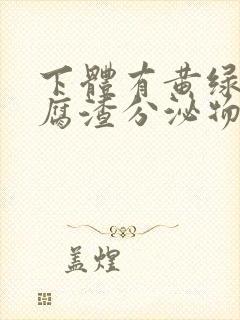 下體有黄绿
腐渣分泌物
盖煌